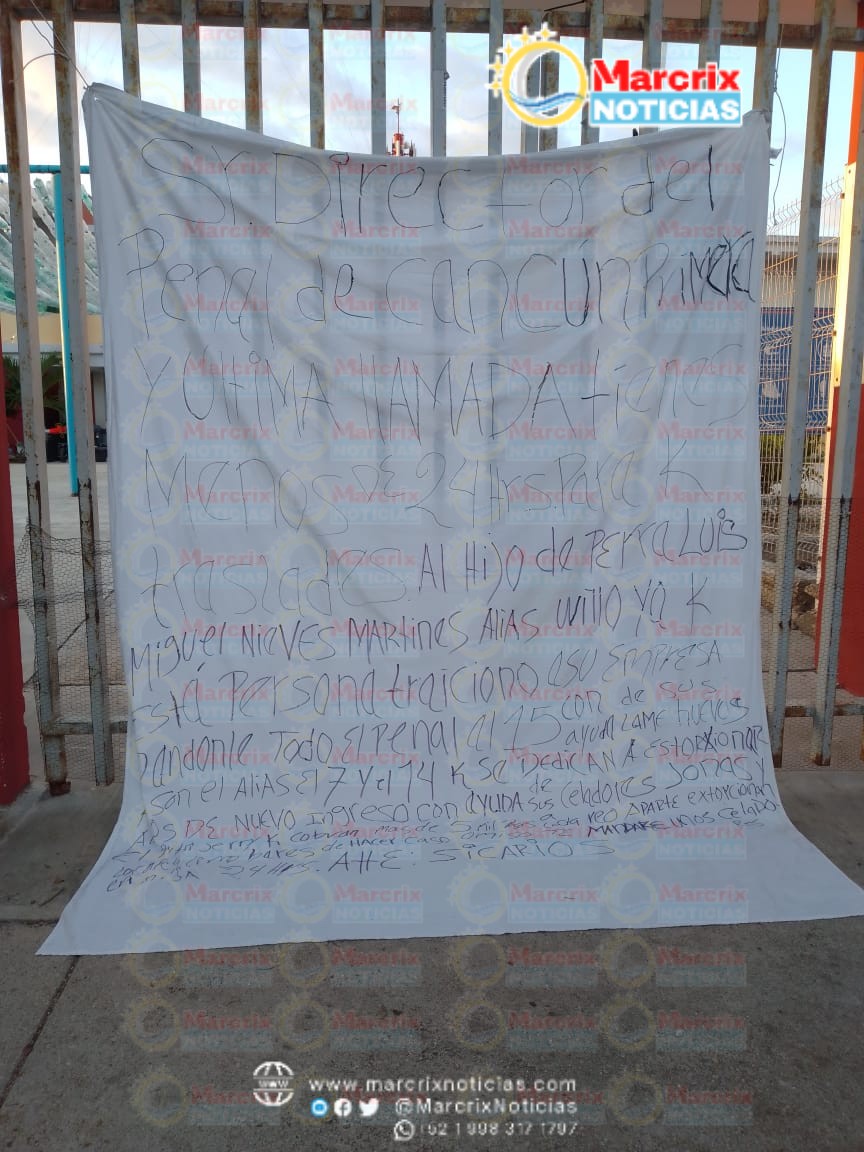 Marcrix
NOTICIAS
Sr Director del
Penal de cancún Primera
Y UltiMA llAMADA tienes
Menos DE 24 hrs. Para K
trasLades. Al Hijo de PErra LUis
MigUel NiEVES MARtines Alias Willo Ya K
Está Persona traiciono asu EMPRESA
Dandonle Todo El Penal al 15 con de sus
ayuda LAME hueves
son el AliAS El 7 Y el 14 K se DEDICAN A Estorxionar
Alos DE NUEVO Ingreso con ayuda de sus celadores Jonas y
mas de 5 Mil cada reo APARTE extorcionan
de Hacer caso MANDARE unos Celado-
RES
24 Hrs. Atte: SicARiOS
www.marcrixnoticias.com
@MarcrixNoticias
+52 1 998 317 1797